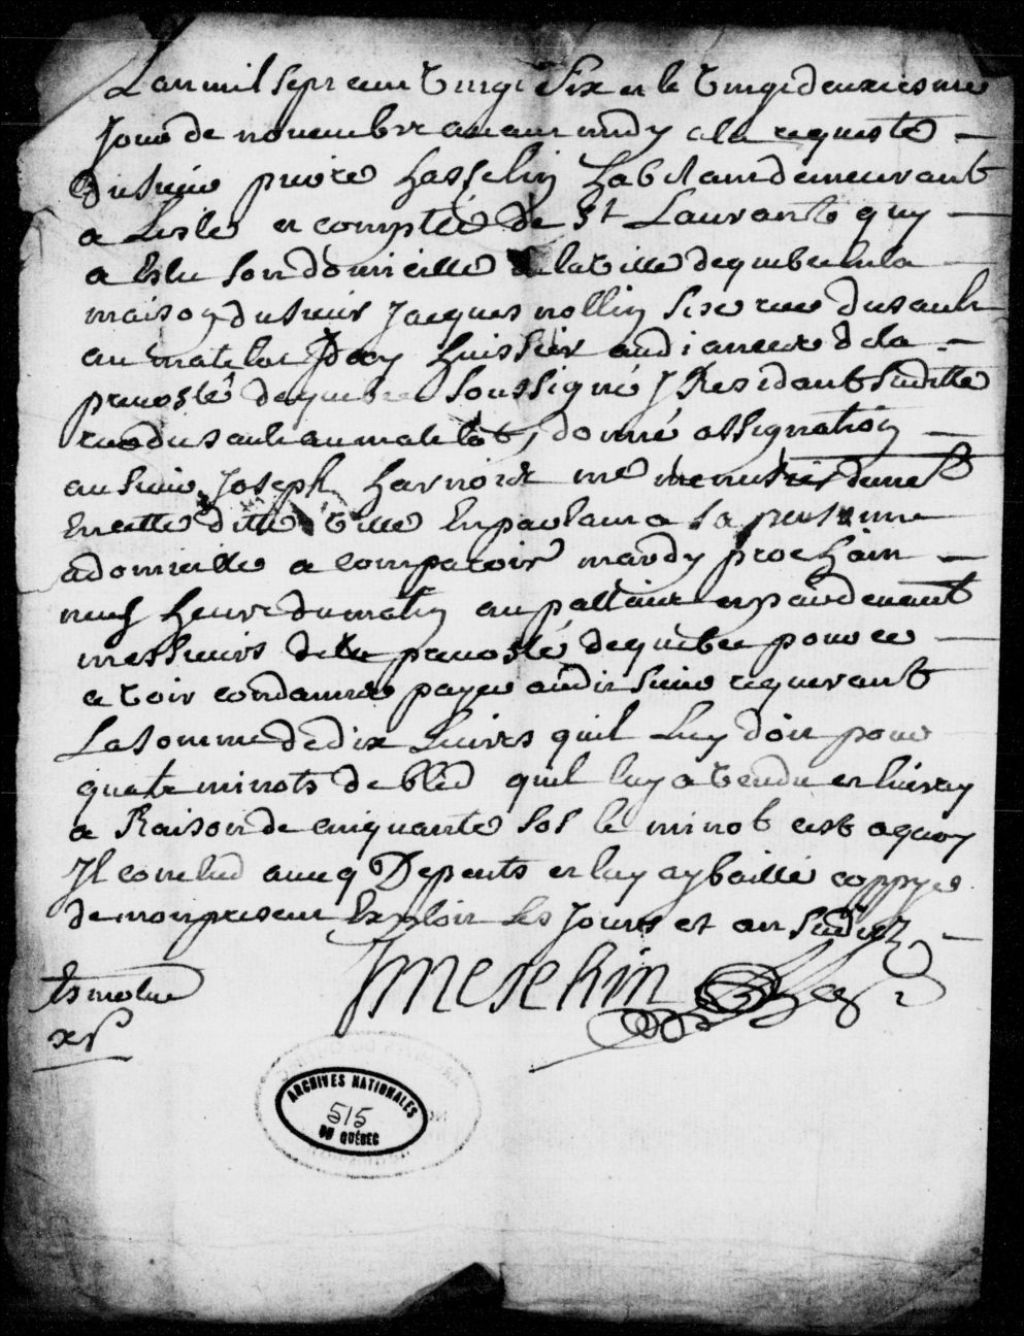 Lan mil sept cent Vingt Six et le Vingt deuxiesme
Jour de novembre avant midy a la requeste
du sieur pierre hasselin habitant demeurant
a lisle et compté de St Laurant quy
a Eslu son domicille en la Ville de quebec en la
maison du sieur Jacques mollin size rue du sault
au matelot Jay huissier audiancier de la
prevosté de quebec soussigné J Residant susditte
rue du sault au matelot, donné assignation
au sieur Joseph me menusier demt
En cette ditte Ville En parlant a sa personne
a domicille a comparoir mardy prochain
neuf heure du matin au pallais et pardevant
messieurs de la prevosté de quebec pour ce
a voir condamner payer audit sieur requerant
La somme de dix Livres quil Luy doit pour
quatre minots de bled quil luy a Vendu et livray
a Raison de cinquante sols le minot cest aquoy
Il conclud avecq Depents et luy ay baillé coppye
de mon present Exploit les Jours et an susditz
xs
ARCHIVES NATIONALES
515
DU QUÉBEC